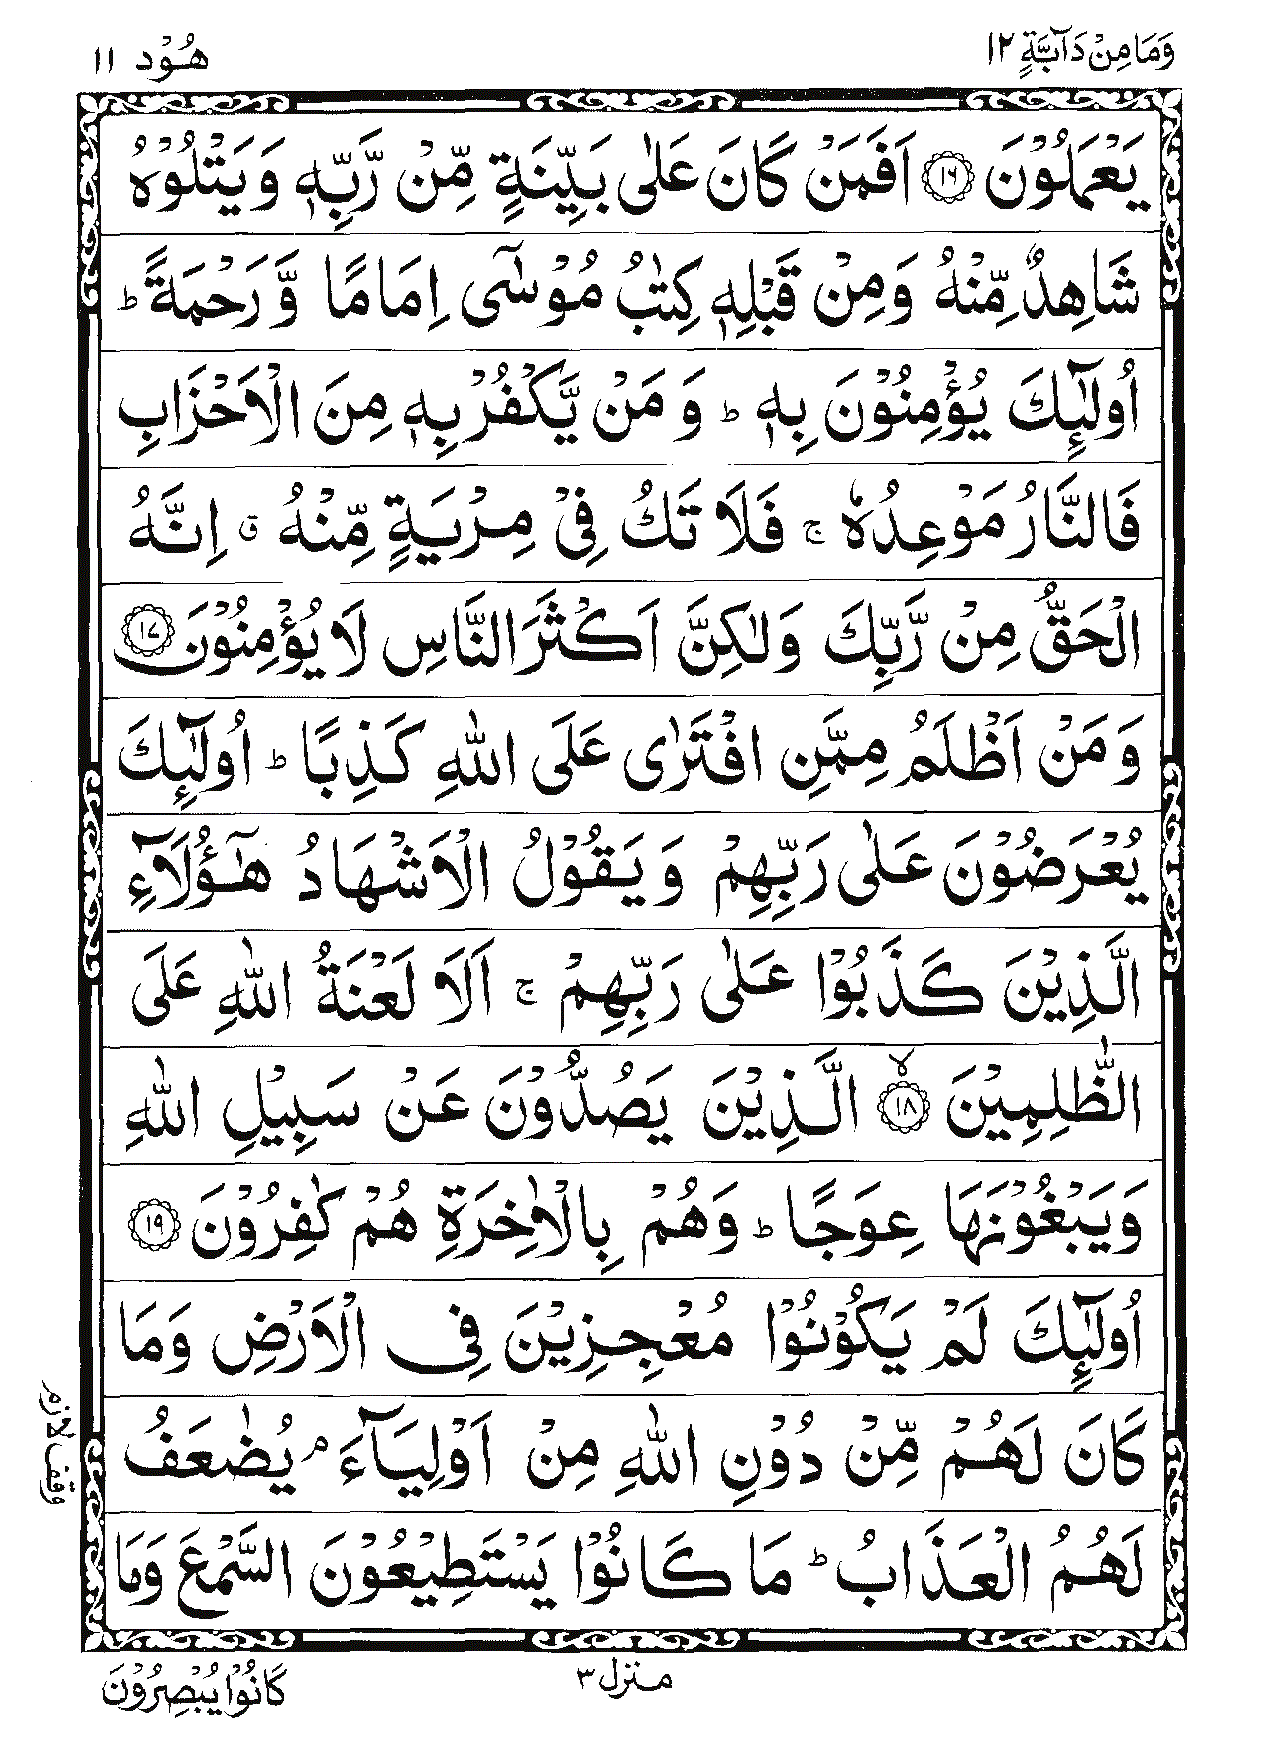 وَمَا مِنْ دَآبَّةٍ ١٢
هُوْد ١١
يَعْمَلُوْنَ ﴿١٦﴾ اَفَمَنْ كَانَ عَلٰى بَيِّنَةٍ مِّنْ رَّبِّهٖ وَيَتْلُوْهُ
شَاهِدٌ مِّنْهُ وَمِنْ قَبْلِهٖ كِتٰبُ مُوْسٰٓى اِمَامًا وَّ رَحْمَةً ؕ
اُولٰٓئِكَ يُؤْمِنُوْنَ بِهٖ ؕ وَ مَنْ يَّكْفُرْ بِهٖ مِنَ الْاَحْزَابِ
فَالنَّارُ مَوْعِدُهٗ ۚ فَلَا تَكُ فِيْ مِرْيَةٍ مِّنْهُ ۗ اِنَّهُ
الْحَقُّ مِنْ رَّبِّكَ وَلٰكِنَّ اَكْثَرَ النَّاسِ لَا يُؤْمِنُوْنَ ﴿١٧﴾
وَ مَنْ اَظْلَمُ مِمَّنِ افْتَرٰى عَلَى اللّٰهِ كَذِبًا ؕ اُولٰٓئِكَ
يُعْرَضُوْنَ عَلٰى رَبِّهِمْ وَ يَقُوْلُ الْاَشْهَادُ هٰٓؤُلَآءِ
الَّذِيْنَ كَذَبُوْا عَلٰى رَبِّهِمْ ۚ اَلَا لَعْنَةُ اللّٰهِ عَلَى
الظّٰلِمِيْنَ ﴿١٨﴾ ۙ الَّذِيْنَ يَصُدُّوْنَ عَنْ سَبِيْلِ اللّٰهِ
وَيَبْغُوْنَهَا عِوَجًا ؕ وَهُمْ بِالْاٰخِرَةِ هُمْ كٰفِرُوْنَ ﴿١٩﴾
اُولٰٓئِكَ لَمْ يَكُوْنُوْا مُعْجِزِيْنَ فِى الْاَرْضِ وَمَا
كَانَ لَهُمْ مِّنْ دُوْنِ اللّٰهِ مِنْ اَوْلِيَآءَ ۘ يُضٰعَفُ
وقف لازم
لَهُمُ الْعَذَابُ ؕ مَا كَانُوْا يَسْتَطِيْعُوْنَ السَّمْعَ وَمَا
منزل ٣
كَانُوْا يُبْصِرُوْنَ